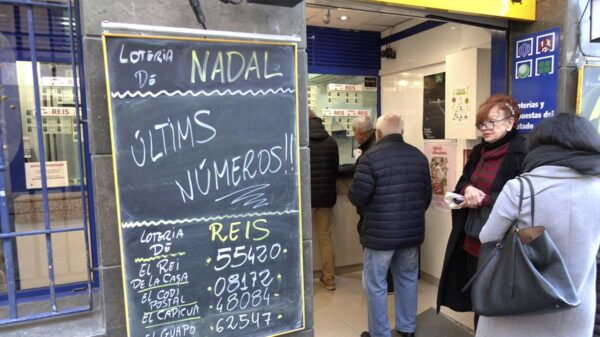 LOTERIA
DE
NADAL
ÚLTIMS
NÚMEROS!!
LOTERIA
DE
REIS
EL REI
DE LA CASA
55420
EL CODI
POSTAL
08172
EL CAPICUA
48084
EL GUAPO
62547
REIS
REIS
REIS
Loterías y
Apuestas del
Estado